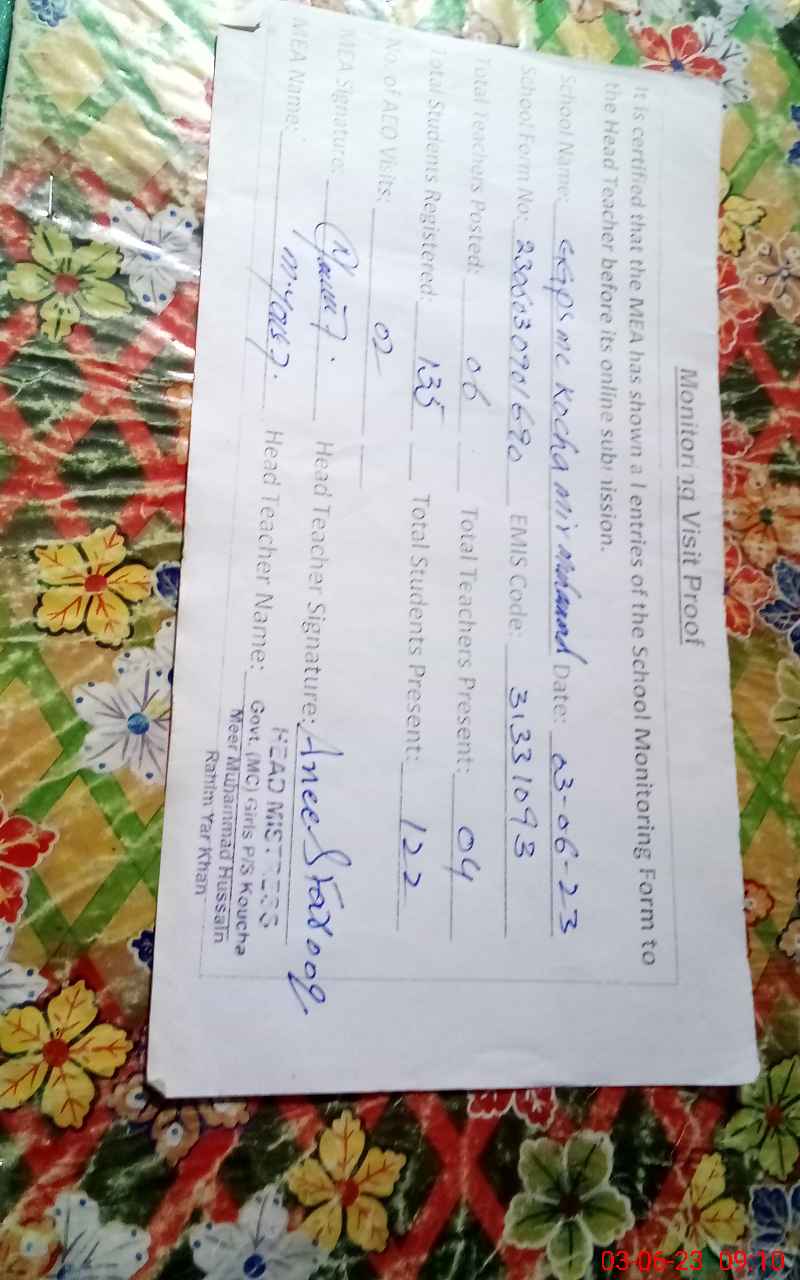 Monitoring Visit Proof
It is certified that the MEA has shown all entries of the School Monitoring Form to
the Head Teacher before its online submission.
School Name: GGPS MC Kocha Mir Date: 03-06-23
School Form No: EMIS Code: 31331093
Total Teachers Posted: 06 Total Teachers Present: 04
Total Students Registered: 135 Total Students Present: 122
No. of AEO Visits: 02
MEA Signature: Head Teacher Signature: Aneela Farooq
MEA Name: M. Yousaf. Head Teacher Name:
HEAD MISTRESS
Govt. (MC) Girls P/S Koucha
Meer Muhammad Hussain
Rahim Yar Khan
03-06-23 09:10